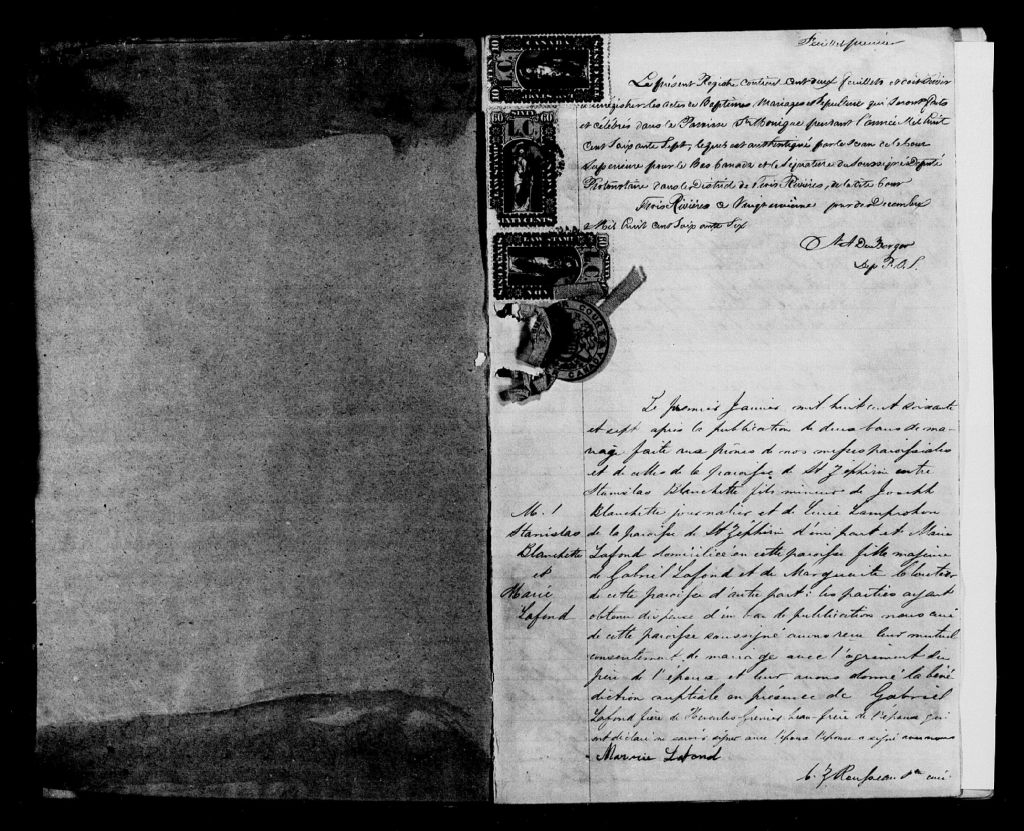 Feuillet premier
Le présent Registre contient cent deux feuillets et doit servir
à enrégistrer les actes de Baptemes, Mariages et Sepulture qui seront faits
et célébrés dans la Paroisse Ste Monique pendant l'année Mil Huit
Cent Soixante Sept, lequel est authentiqué par le Sceau de la Cour
Supérieure pour le Bas Canada et la Signature du Soussigné Deputé
Protonotaire dans le District de Trois Rivières, de la dite Cour
Trois Rivières ce Vingt jour de Decembre
Mil Huit Cent Soixante Six
Dep P.C.S.
CANADA
10
L.C.
SIXTY
60
L.C.
LAW STAMP
SIXTY CENTS
LAW STAMP
60
L.C.
SIXTY CENTS
COUR
CANADA
M. 1
Stanislas
Blanchette
et
Marie
Lafond
Le premier Janvier mil huit cent soixante
et sept après la publication de deux bans de ma-
riage faite aux prônes de nos messes paroissiales
et de celles de la paroisse de St Zéphirin entre
Stanislas Blanchette fils mineur de Joseph
Blanchette journalier et de Lucie Lamprohon
de la paroisse de St Zéphirin d'une part et Marie
Lafond domiciliée en cette paroisse fille majeure
de Gabriel Lafond et de Marguerite Cloutier
de cette paroisse d'autre part: les parties ayant
obtenu dispense d'un ban de publication nous curé
de cette paroisse soussigné avons reçu leur mutuel
consentement de mariage avec l'agrément du
père de l'époux et leur avons donné la béné
diction nuptiale en présence de Gabriel
Lafond frère de beau-frère de l'épouse qui
ont déclaré ne savoir signer avec l'époux l'épouse a signé avec nous
Marie Lafond
Ptre curé